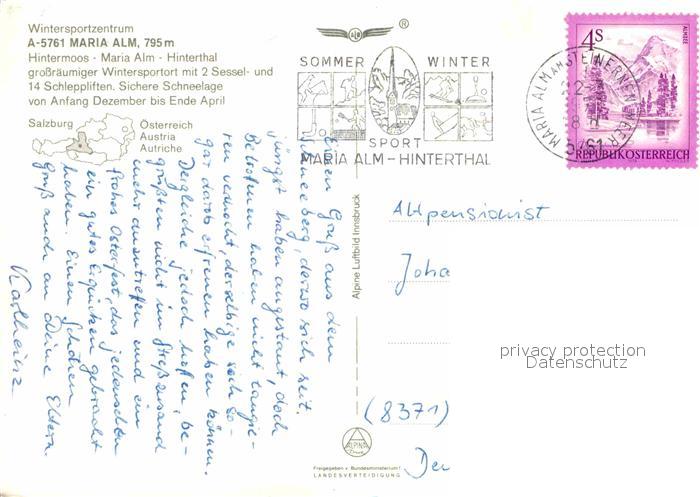 Wintersportzentrum
A-5761 MARIA ALM, 795 m
Hintermoos · Maria Alm · Hinterthal
großräumiger Wintersportort mit 2 Sessel- und
14 Schleppliften. Sichere Schneelage
von Anfang Dezember bis Ende April
Salzburg
Österreich
Austria
Autriche
®
SOMMER WINTER
SPORT
MARIA ALM – HINTERTHAL
MARIA ALM AM STEINERNEN MEER
5761
4 S
ALMSEE
REPUBLIK ÖSTERREICH
Einen Gruß aus dem
Schneeberg, der wo sich seit
jüngst haben angestaut, doch
Betroffenen haben nicht
ren vermocht, derselbige sich so-
gar darob erfreuen haben können.
Dergleiche jedoch hoffen, be-
grüßten nicht im Streßzusand
mehr anzutreffen und ein
frohes Osterfest, das jedenselben
ein gutes Erquicken gebracht
haben. Einen Schönen
Gruß auch an Deine Eltern.
Karlheinz
Alpine Luftbild Innsbruck
Altpensionist
Joha
(8371)
Der
privacy protection
Datenschutz
ALPINE
Freigegeben v. Bundesministerium f.
LANDESVERTEIDIGUNG